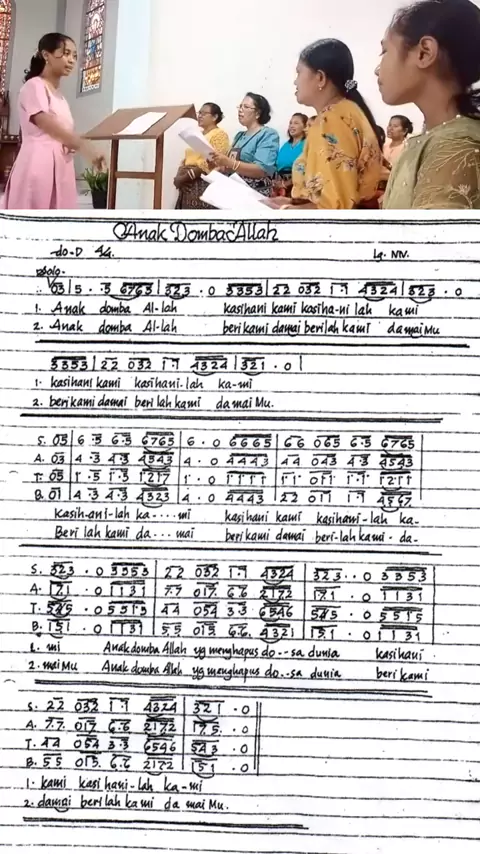 Anak Domba Allah
do=D 4/4. Lg. NN.
Solo.
03 | 5 . . 5 6765 | 323 . 0 3353 | 22 032 1 1 4324 | 323 . 0
1. Anak domba Al-lah kasihani kami kasiha-ni lah kami
2. Anak domba Al-lah berikami damai berilah kami damaiMu
3353 | 22 032 1 1 4324 | 321 . 0 |
1. kasihani kami kasihani-lah ka-mi
2. berikami damai beri lah kami da maiMu.
S. 05 | 6 . 5 6.5 6765 | 6 . 0 6665 | 66 065 6.5 6765
A. 03 | 4 . 3 4.3 4543 | 4 . 0 4443 | 44 043 4.3 4543
T. 05 | 1 . 5 1.5 1217 | 1 . 0 1111 | 11 011 1.1 1211
B. 01 | 4 . 3 4.3 4323 | 4 . 0 4443 | 22 011 1.1 4567
Kasih-ani-lah ka-....mi kasihani kami kasihani-lah ka-
Beri lah kami da....mai berikami damai beri-lah kami - da-
S. 323 . 0 3353 | 22 032 1.1 4324 | 323 . . 0 3353
A. 171 . 0 1131 | 77 017 66 2172 | 171 . 0 1131
T. 545 . 0 5515 | 44 054 33 6546 | 545 . 0 5515
B. 151 . 0 1131 | 55 015 6.6. 4321 | 151 . 0 1131
1. mi Anak domba Allah yg menghapus do--sa dunia kasihani
2. maiMu Anak domba Allah yg menghapus do..sa dunia beri kami
S. 22 032 1 1 4324 | 321 . 0
A. 77 017 6.6 2172 | 175 . 0
T. 44 054 3.3 6546 | 543 . 0
B. 55 015 6.6 2122 | 151 . 0
1. kami kasi hani-lah ka-mi
2. damai beri lah ka mi da mai Mu.